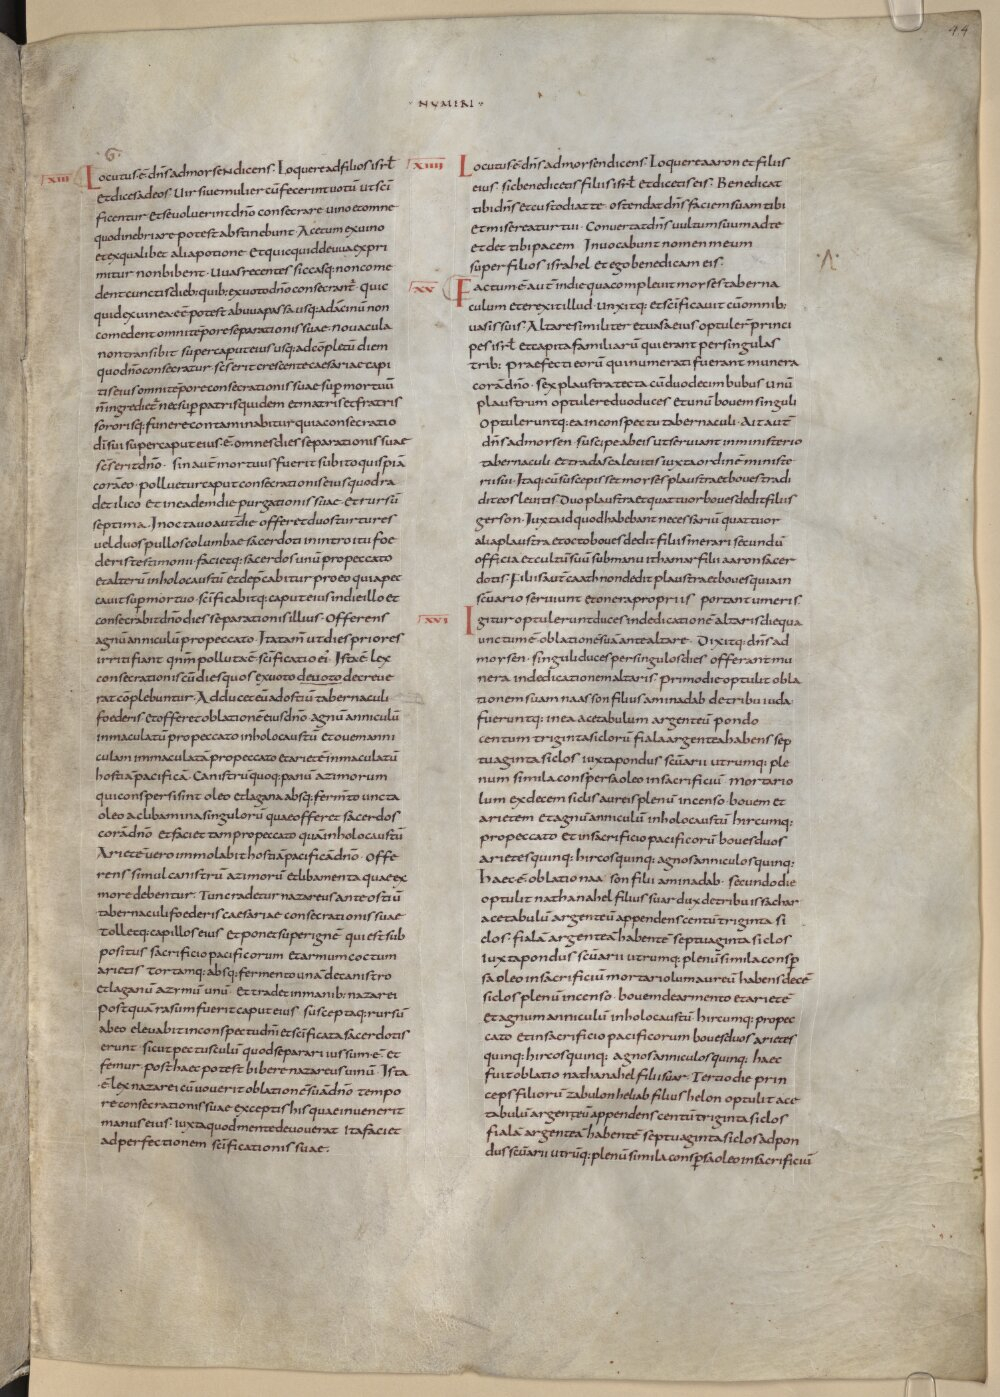 44
· NUMERI ·
XIII
Locutus· ē· dn̄s admorsen dicens· Loquere ad filios isrl̄
et dices ad eos· Uir siue mulier cū fecerint uotū ut sc̄i
ficentur et se uoluerint dn̄o consecrare· uino et omne
quod inebriare potest abstinebunt· Acetum ex uino
et ex qualibet alia potione· Et quicquid de uua expri
mitur non bibent· Uuas recentes siccasq; non come
dent cunctis dieb; quib; ex uoto dn̄o consecrant᷑· quic
quid ex uinea eē potest ab uua passa usq; ad acinū non
comedent omni tēpore separationis suae· nouacula
non transibit super caput eius usq; ad cōpletū diem
quo dn̄o consecratur· sc̄s erit crescente caesariae capi
tis eius omni tēpore consecrationis suae sup̄ mortuū
n̄ ingrediet᷑ nec sup̄ patris quidem et matris et fratris
sororisq; funere contaminabitur quia consecratio
dī sui super caput eius· ē· omnes dies separationis suae
sc̄s erit dn̄o· sin aut̄ mortuus fuerit subito quispiā
corā eo· polluetur caput consecrationis eius quod ra
det ilico et in eadem die purgationis suae· et rursū
septima· In octauo aut̄ die offeret duos turtures
uel duos pullos columbae sacerdoti in introitu foe
deris testimonii· facietq; sacerdos unū pro peccato
et alterū in holocaustū et dep̄cabitur pro eo quia pec
cauit sup̄ mortuo· sc̄ificabitq; caput eius in die illo et
consecrabit dn̄o dies separationis illius· Offerens
agnū anniculū pro peccato· Ita tam̄ ut dies priores
irriti fiant qn̄m polluta ē sc̄ificatio ei᷑· Ista ē lex
consecrationis cū dies quos ex uoto deuoto decreue
rat cōplebuntur· Adducet eū ad ostiū tabernaculi
foederis et offeret oblationē eius dn̄o· agnū anniculū
inmaculatū pro peccato in holocaustū et ouem anni
culam inmaculatā pro peccato et arietē inmaculatū
hostiā pacificā· Canistrū quoq; panū azimorum
qui conspersi sint oleo et lagana absq; ferm̄to uncta
oleo ac libamina singulorū quae offeret sacerdos
corā dn̄o et faciet tam pro peccato quā in holocaustū
Arietē uero immolabit hostiā pacificā dn̄o· Offe
rens simul canistrū azimorū et libamenta quae ex
more debentur· Tunc radetur nazareus ante ostiū
tabernaculi foederis caesariae consecrationis suae
Tolletq; capillos eius et ponet super ignē qui est sub
positus sacrificio pacificorum et armum coctum
arietis tortamq; absq; fermento unā de canistro
et laganū azymū unū· Et tradet in manib; nazarei
postquā rasum fuerit caput eius susceptaq; rursū
ab eo eleuabit in conspectu dn̄i et sc̄ificata sacerdotis
erunt sicut pectusculū quod separari iussum· ē· et
femur· post haec potest bibere nazareus uinū Ista
· ē· lex nazarei cū uouerit oblationē suā dn̄o tempo
re consecrationis suae exceptis his quae inuenerit
manus eius· iuxta quod mente deuouerat ita faciet
ad perfectionem sc̄ificationis suae·
XIIII
Locutus· ē· dn̄s ad morsen dicens· Loquere aaron et filiis
eius· sic benedicetis filiis isrl̄ et dicetis eis· Benedicat
tibi dn̄s et custodiat te· ostendat dn̄s faciem suam tibi
et misereatur tui· Conuertat dn̄s uultum suum ad te
et det tibi pacem Inuocabunt nomen meum
super filios israhel et ego benedicam eis·
XV
Factum ē aut̄ in die qua compleuit morses taberna
culum et erexit illud· unxitq; et sc̄ificauit cū omnib;
uasis suis· Altare similiter et uasa eius optuler̄ princi
pes isrl̄ et capita familiarū qui erant per singulas
trib; praefecti eorū qui numerati fuerant munera
corā dn̄o· sex plaustra tecta cū duodecim bubus unū
plaustrum optulere duo duces et unū bouem singuli
Optuleruntq; ea in conspectu tabernaculi· Ait aut̄
dn̄s ad morsen· suscipe ab eis ut seruiant in ministerio
tabernaculi et tradas ea leuitis iuxta ordinē ministe
rii sui· Itaq; cū suscepisset morses plaustra et boues tradi
dit eos leuitis Duo plaustra et quattuor boues dedit filiis
gerson· Iuxta id quod habebant necessariū quattuor
alia plaustra et octo boues dedit filiis merari secundū
officia et cultū suū sub manu ithamar filii aaron sacer
dotis· Filiis aut̄ caath non dedit plaustra et boues quia in
sc̄uario seruiunt et onera propriis portant umeris·
XVI
Igitur optulerunt duces in dedicationē altaris die qua
unctum ē oblationē suā ante altare· Dixitq; dn̄s ad
morsen· singuli duces per singulos dies offerant mu
nera in dedicationem altaris· Primo die optulit obla
tionem suam naasson filius aminadab de tribu iuda·
fueruntq; in ea acetabulum argenteū pondo
centum triginta siclorū fiala argentea habens sep
tuaginta siclos iuxta pondus sc̄uarii utrumq; ple
num simila conspersa oleo in sacrificiū· mortario
lum ex decem siclis aureis plenū incenso· bouem et
arietem et agnū anniculū in holocaustū hircumq;
pro peccato et in sacrificio pacificorū boues duos
arietes quinq; hircos quinq; agnos anniculos quinq;
haec· ē· oblatio naa son filii aminadab· secundo die
optulit nathanahel filius suar dux de tribu issachar
acetabulū argenteū appendens centū triginta si
clos· fialā argenteā habentē septuaginta siclos
iuxta pondus sc̄uarii utrumq; plenū simila consp̄
sa oleo in sacrificiū mortariolum aureū habens decē
siclos plenū incenso· bouem de armento et arietē
et agnum anniculū in holocaustū· hircumq; pro pec
cato et in sacrificio pacificorum boues duos arietes
quinq; hircos quinq; agnos anniculos quinq; haec
fuit oblatio nathanahel filii suar· Tertio die prin
ceps filiorū zabulon heliab filius helon optulit ace
tabulū argenteū appendens centū triginta siclos
fialā argenteā habentē septuaginta siclos ad pon
dus sc̄uarii utrūq; plenū simila consp̄sa oleo in sacrificiū